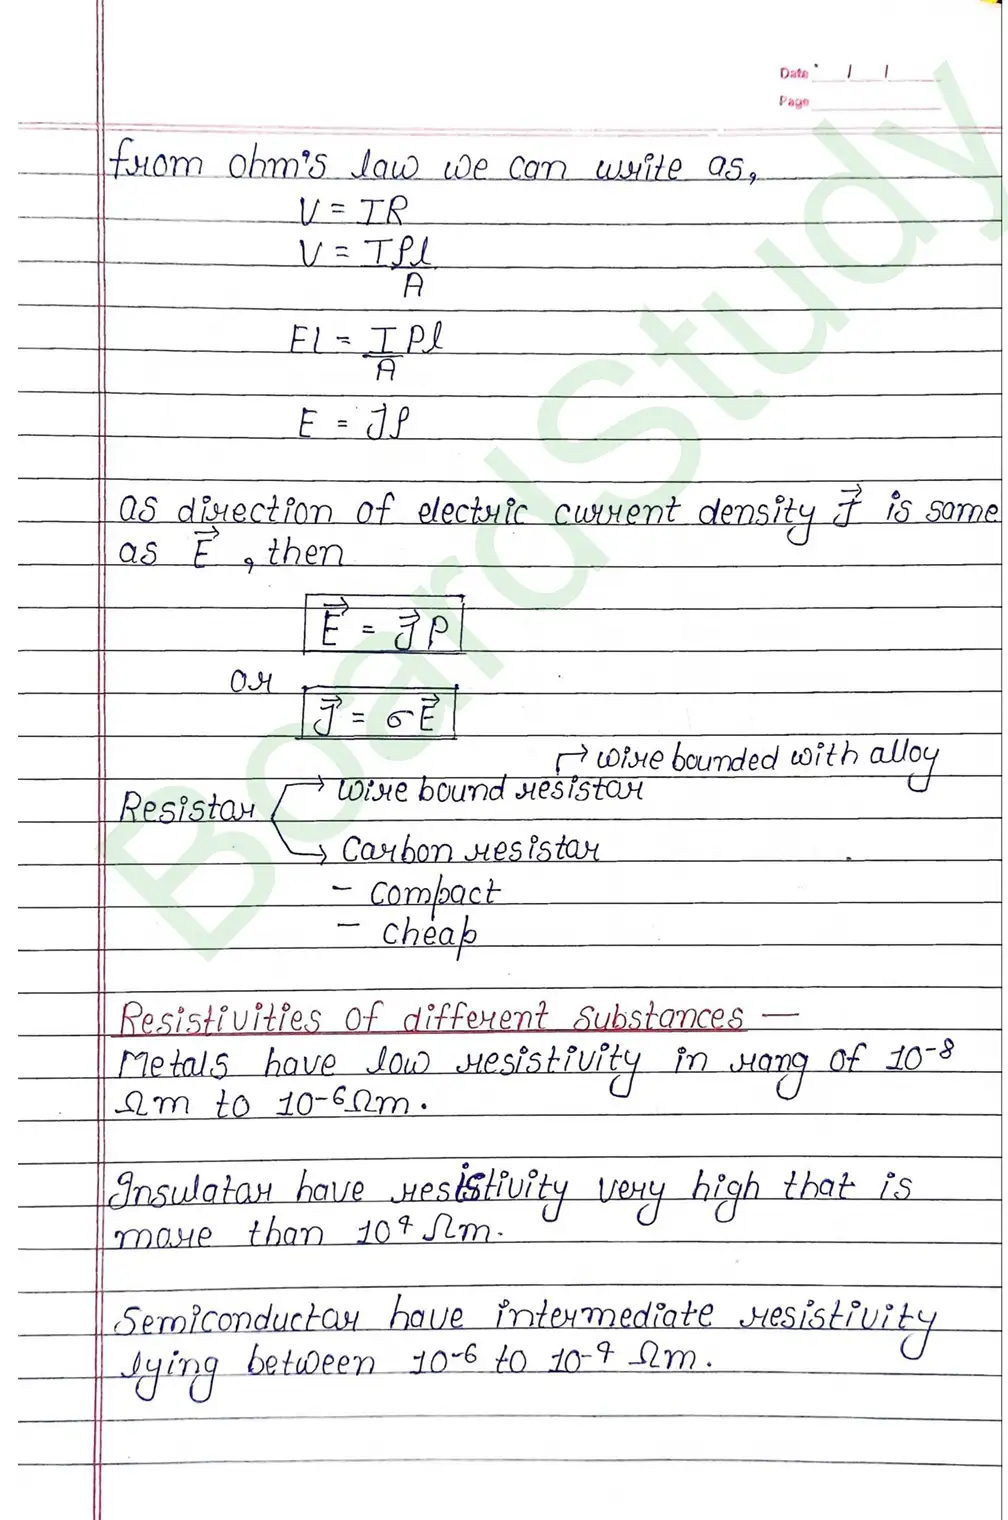 Date / /
Page
from ohm's law we can write as,
V = IR
V = Iρl
A
El = I ρl
A
E = Jρ
as direction of electric current density J⃗ is same
as E⃗ , then
E⃗ = J⃗ρ
or
J⃗ = σE⃗
→ wire bounded with alloy
Resistor → wire bound resistor
→ Carbon resistor
- Compact
- Cheap
Resistivities of different substances —
Metals have low resistivity in rang of 10⁻⁸
Ωm to 10⁻⁶Ωm.
Insulator have resistivity very high that is
more than 10⁴ Ωm.
Semiconductor have intermediate resistivity
lying between 10⁻⁶ to 10⁻⁴ Ωm.
BoardStudy